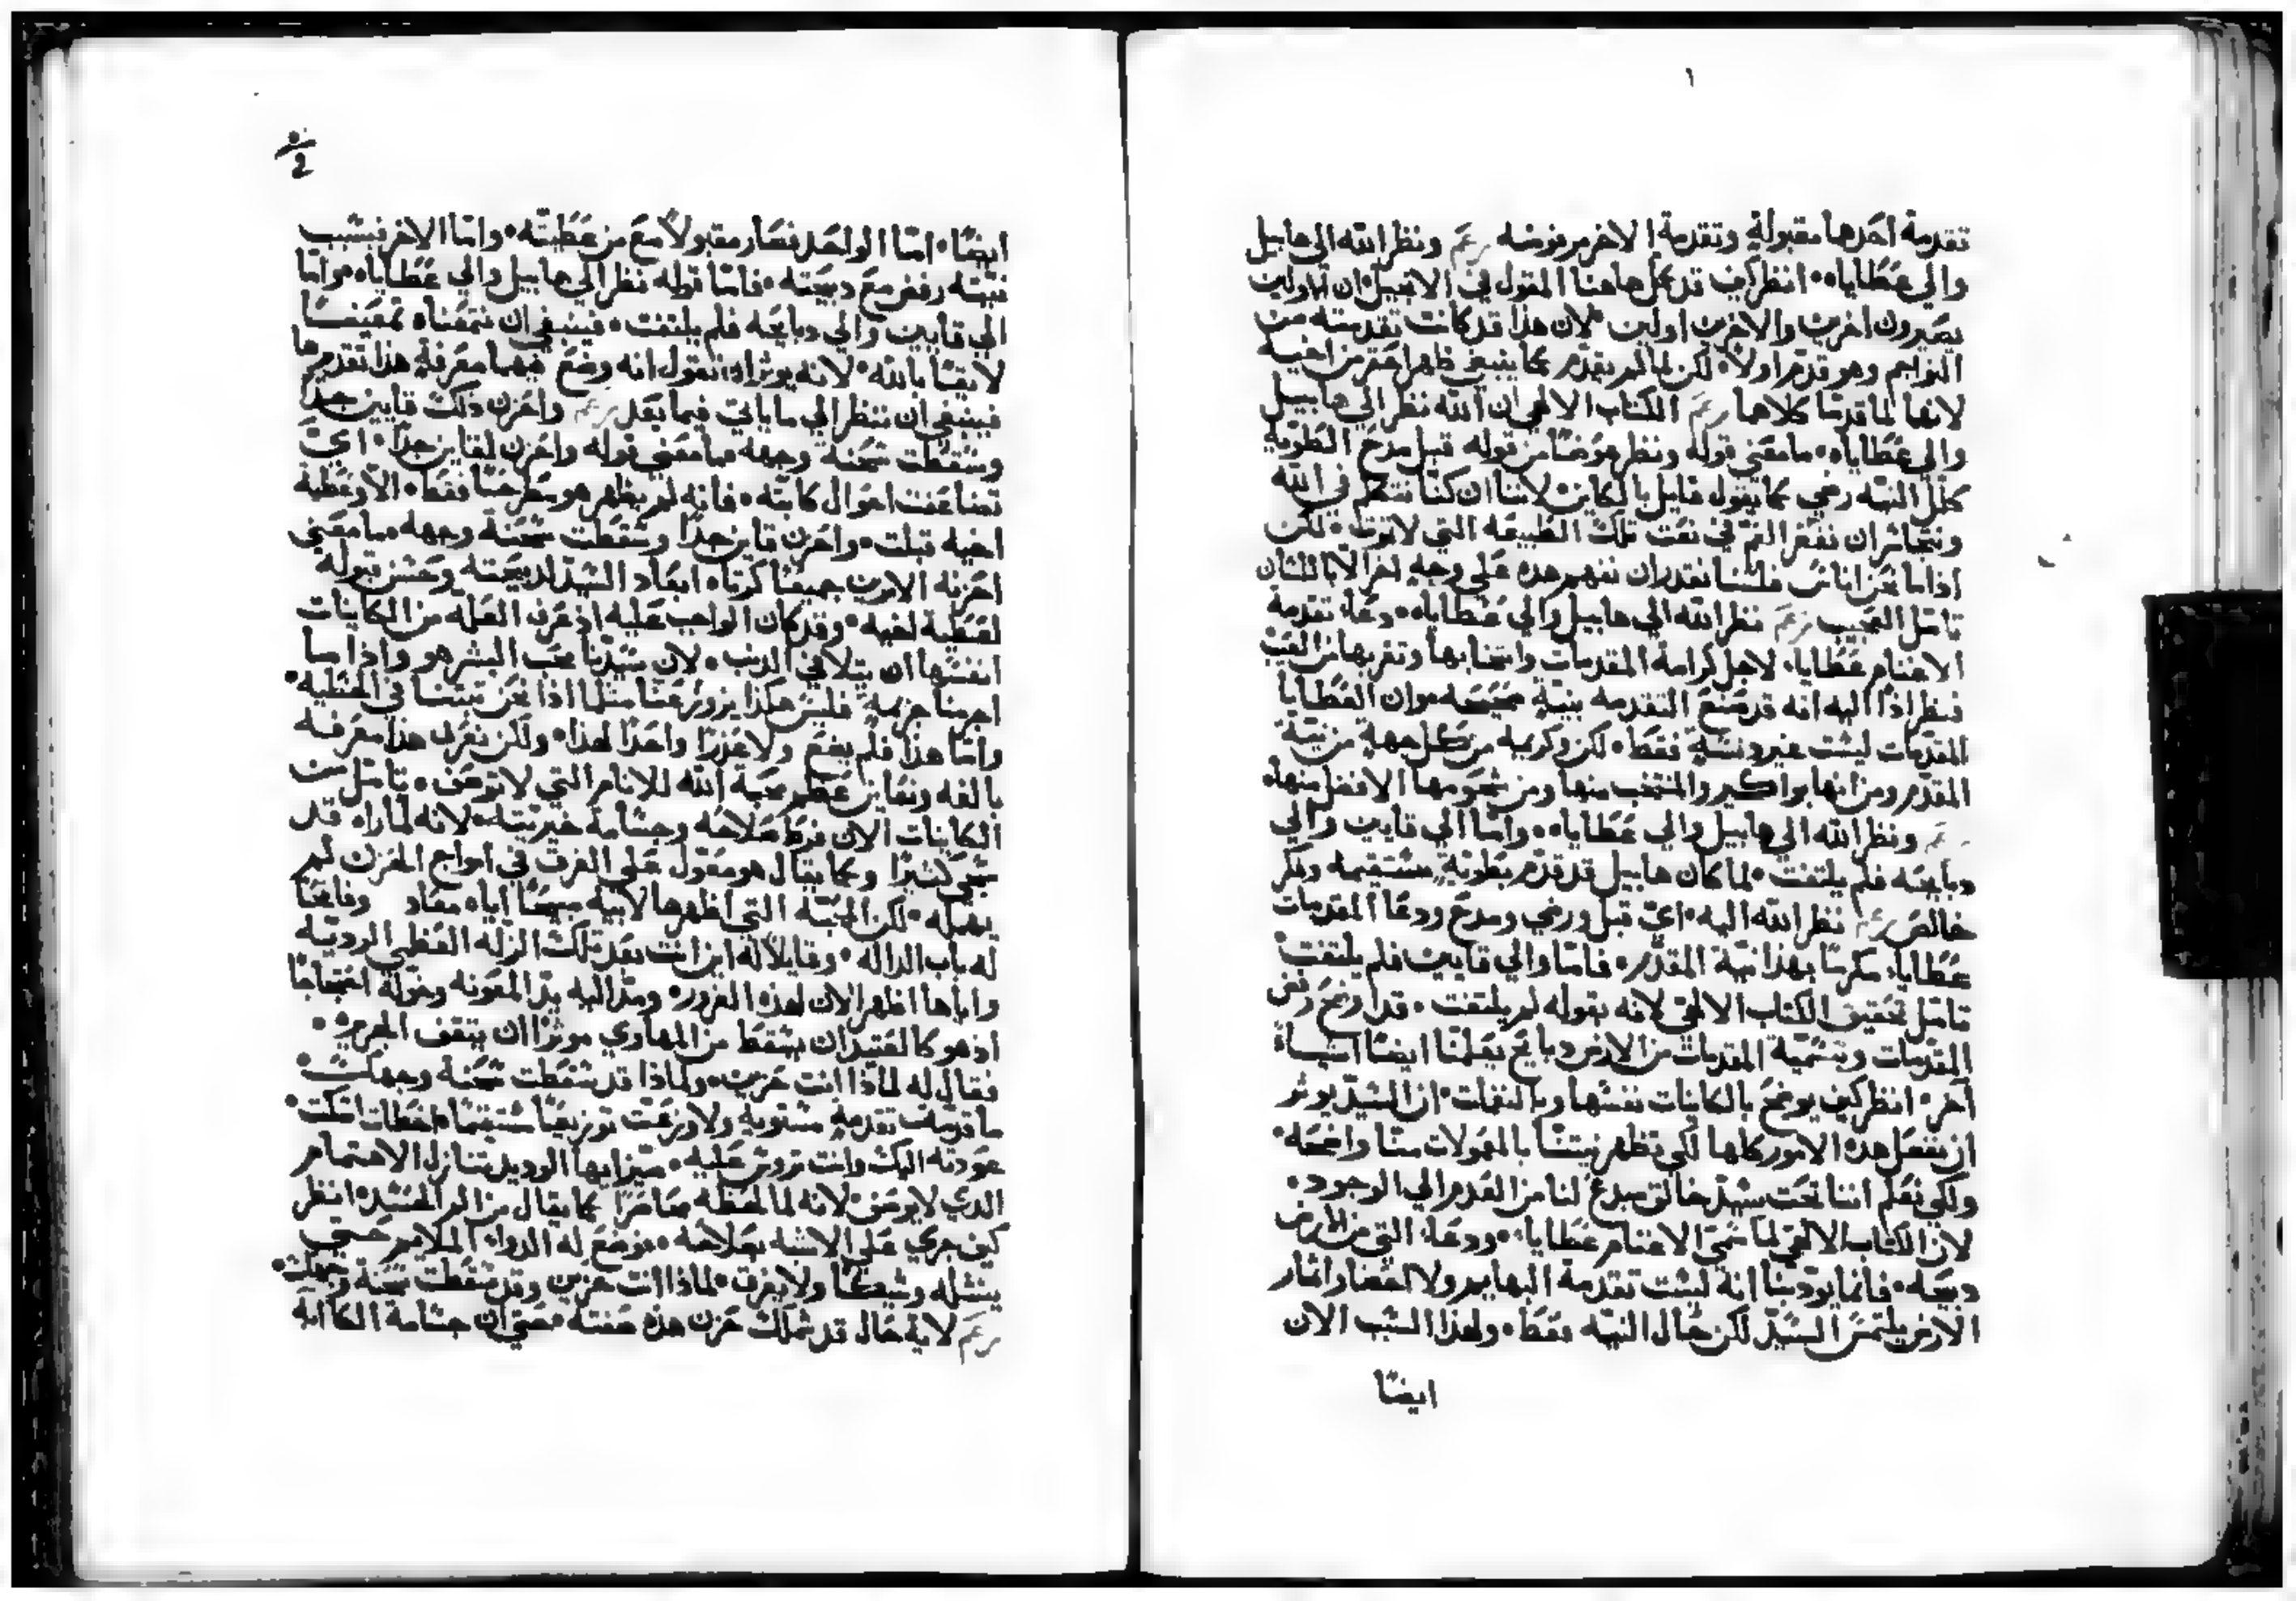 ١
تقدمة احدها مقبولة وتقدمة الاخر مرفوضه ونظر الله الي هابيل
والي عطاياه انظر كيف قد كمل هاهنا المقول في الانجيل ان الاولين
يصيرون اخرين والاخرين اولين لان هذا قد كانت تقدمته من
وهو قدم اولاً لكن لما لم يقدم كما ينبغي ظهر احقر من اخيه
لانهما لما قدما كلاهما الكتاب الالهي ان الله نظر الي هابيل
والي عطاياه ما معني قوله ونظر عوضًا من قوله قبل مدح الطوية
كلل النيه رضي كما يقول قايل بالكاين لاننا ان كنا نتكلم في الله
ونتجاسر ان نفغر الفم في نعت تلك الطبيعه التي لا لكن
اذ اما نحن اناس فلسنا نقدر ان نفهم هذه علي وجه اخر الا باللسان
تامل العجيب نظر الله الي هابيل والي عطاياه دعا تقدمة
الاغنام عطايا لاجل كرامة المقدمات وانتخابها وتغربها من العيب
فنظر اذًا اليه انه قد صنع التقدمه بنية صحيحه وان العطايا
المقدمات ليست غير دنسة فقط لكن وكريمه من كل جهة من نية
المقدم ومن انها بواكير والمنتخب منها ومن شحومها الافضل منها
ونظر الله الي هابيل والي عطاياه واما الي قايين والي
دبايحه فلم يلتفت لما كان هابيل قد قدم بطوية مستقيمه وفكر
خالص نظر الله اليه اي قبل ورضي ومدح ودعا المقدمات
عطايا مكرمًا بهذا نية المقدم فاما والي قايين فلم يلتفت
تامل تحقيق الكتاب الالهي لانه بقوله لم يلتفت قد اوضح رفض
المقدمات وبتسمية المقدمات من الارض دبايح يعلمنا ايضًا
آخر انظر كيف يوضح بالكاينات نفسها وبالنعمات ان السيد يوثر
ان نفعل هذه الامور كلها لكي تظهر نيتنا بالمعمولات منا واضحه
ولكي نعلم اننا تحت سيد خالق مبدع لنا من العدم الي الوجود
لان الكتاب الالهي لما سمي الاغنام عطايا ودعا التي من الارض
دبيحه فانما يودبنا انه ليست تقدمة البهايم ولا احضار اثمار
الارض يلتمس السيد لكن حال النيه فقط ولهذا السبب الان
ايضًا
2
ايضًا اما الواحد فصار مقبولاً مع من عطيته واما الاخر فبسبب
نيته رفض مع دبيحته فاما قوله نظر الي هابيل والي عطاياه واما
الي قايين والي دبايحه فلم يلتفت فينبغي ان نتمعناه
لايقًا بالله لانه يوثر ان نقول انه وضع فيهما معرفة هذا تقديمهما
فينبغي ان ننظر الي ما ياتي فيما بعد واحزن ذلك قايين جدا
وسقطت سحنة وجهه ما معني قوله واحزن لقاين جدًا اي
تضاعفت احوال كابته فانه لم يظهر هو مطرحًا فقط الا وعطية
اخيه قبلت واحزن قاين جدًا وسقطت سحنة وجهه ما معني
احزنه الامرين جميعًا كرباه ابعاد السيد لدبيحته وحسن قبوله
لعطية اخيه وقد كان الواجب عليه اذ عرف العله من الكاينات
انفسها ان يتلافي الدنب لان سيدنا محب البشر هو واذا ما
اجرمنا جريمة فليس هكذا يزور عنا مثلما اذا نحن ثبتنا في الخطية
واما هذا فلم يضع ولا غرزًا واحدًا لهذا ولكن نعرف هذا معرفه
بالغه ونعاين عظم محبة الله للانام التي لا توصف تامل من
الكاينات الان فرط صلاحه وجسامة خيريته لانه لما راه قد
شجي كثيرًا وكما يقال هو مقول علي الغرق في امواج الحزن لم
يهمله لكن المحبة التي اظهرها لابيه مبيحًا اياه معاد وفاتحًا
له باب الداله وقايلاً له اين انت بعد تلك الزله العظمي الرديه
واياها اظهر الان لهذه الغرور ومد اليه يد المعونه وخوله احتجاجًا
اذ هو كالعتيد ان يسقط من المهاوي موثرًا ان يتقف المجرم
فقال له لماذا انت حزين ولماذا قد سقطت سحنة وجهك
ما قدمت تقدمة مستوية ولا وزعت توزيعًا مستقيمًا اخطات اسكت
عودته اليك وانت تروس عليه ميز ايها الوديد تنازل الاهتمام
الدي لا يوصف لانه لما لحظه محاصرًا كما يقال من الم الحسد انظر
كيف جري علي الاسيه بصلاحه بوضع له الدوا الملايم حتي
ينشله وشيكًا ولا يغرق لماذا انت حزين وقد سقطت سحنة وجهك
لاية حال قد شملك حزن هذه صفته حتي ان جسامة الكابه